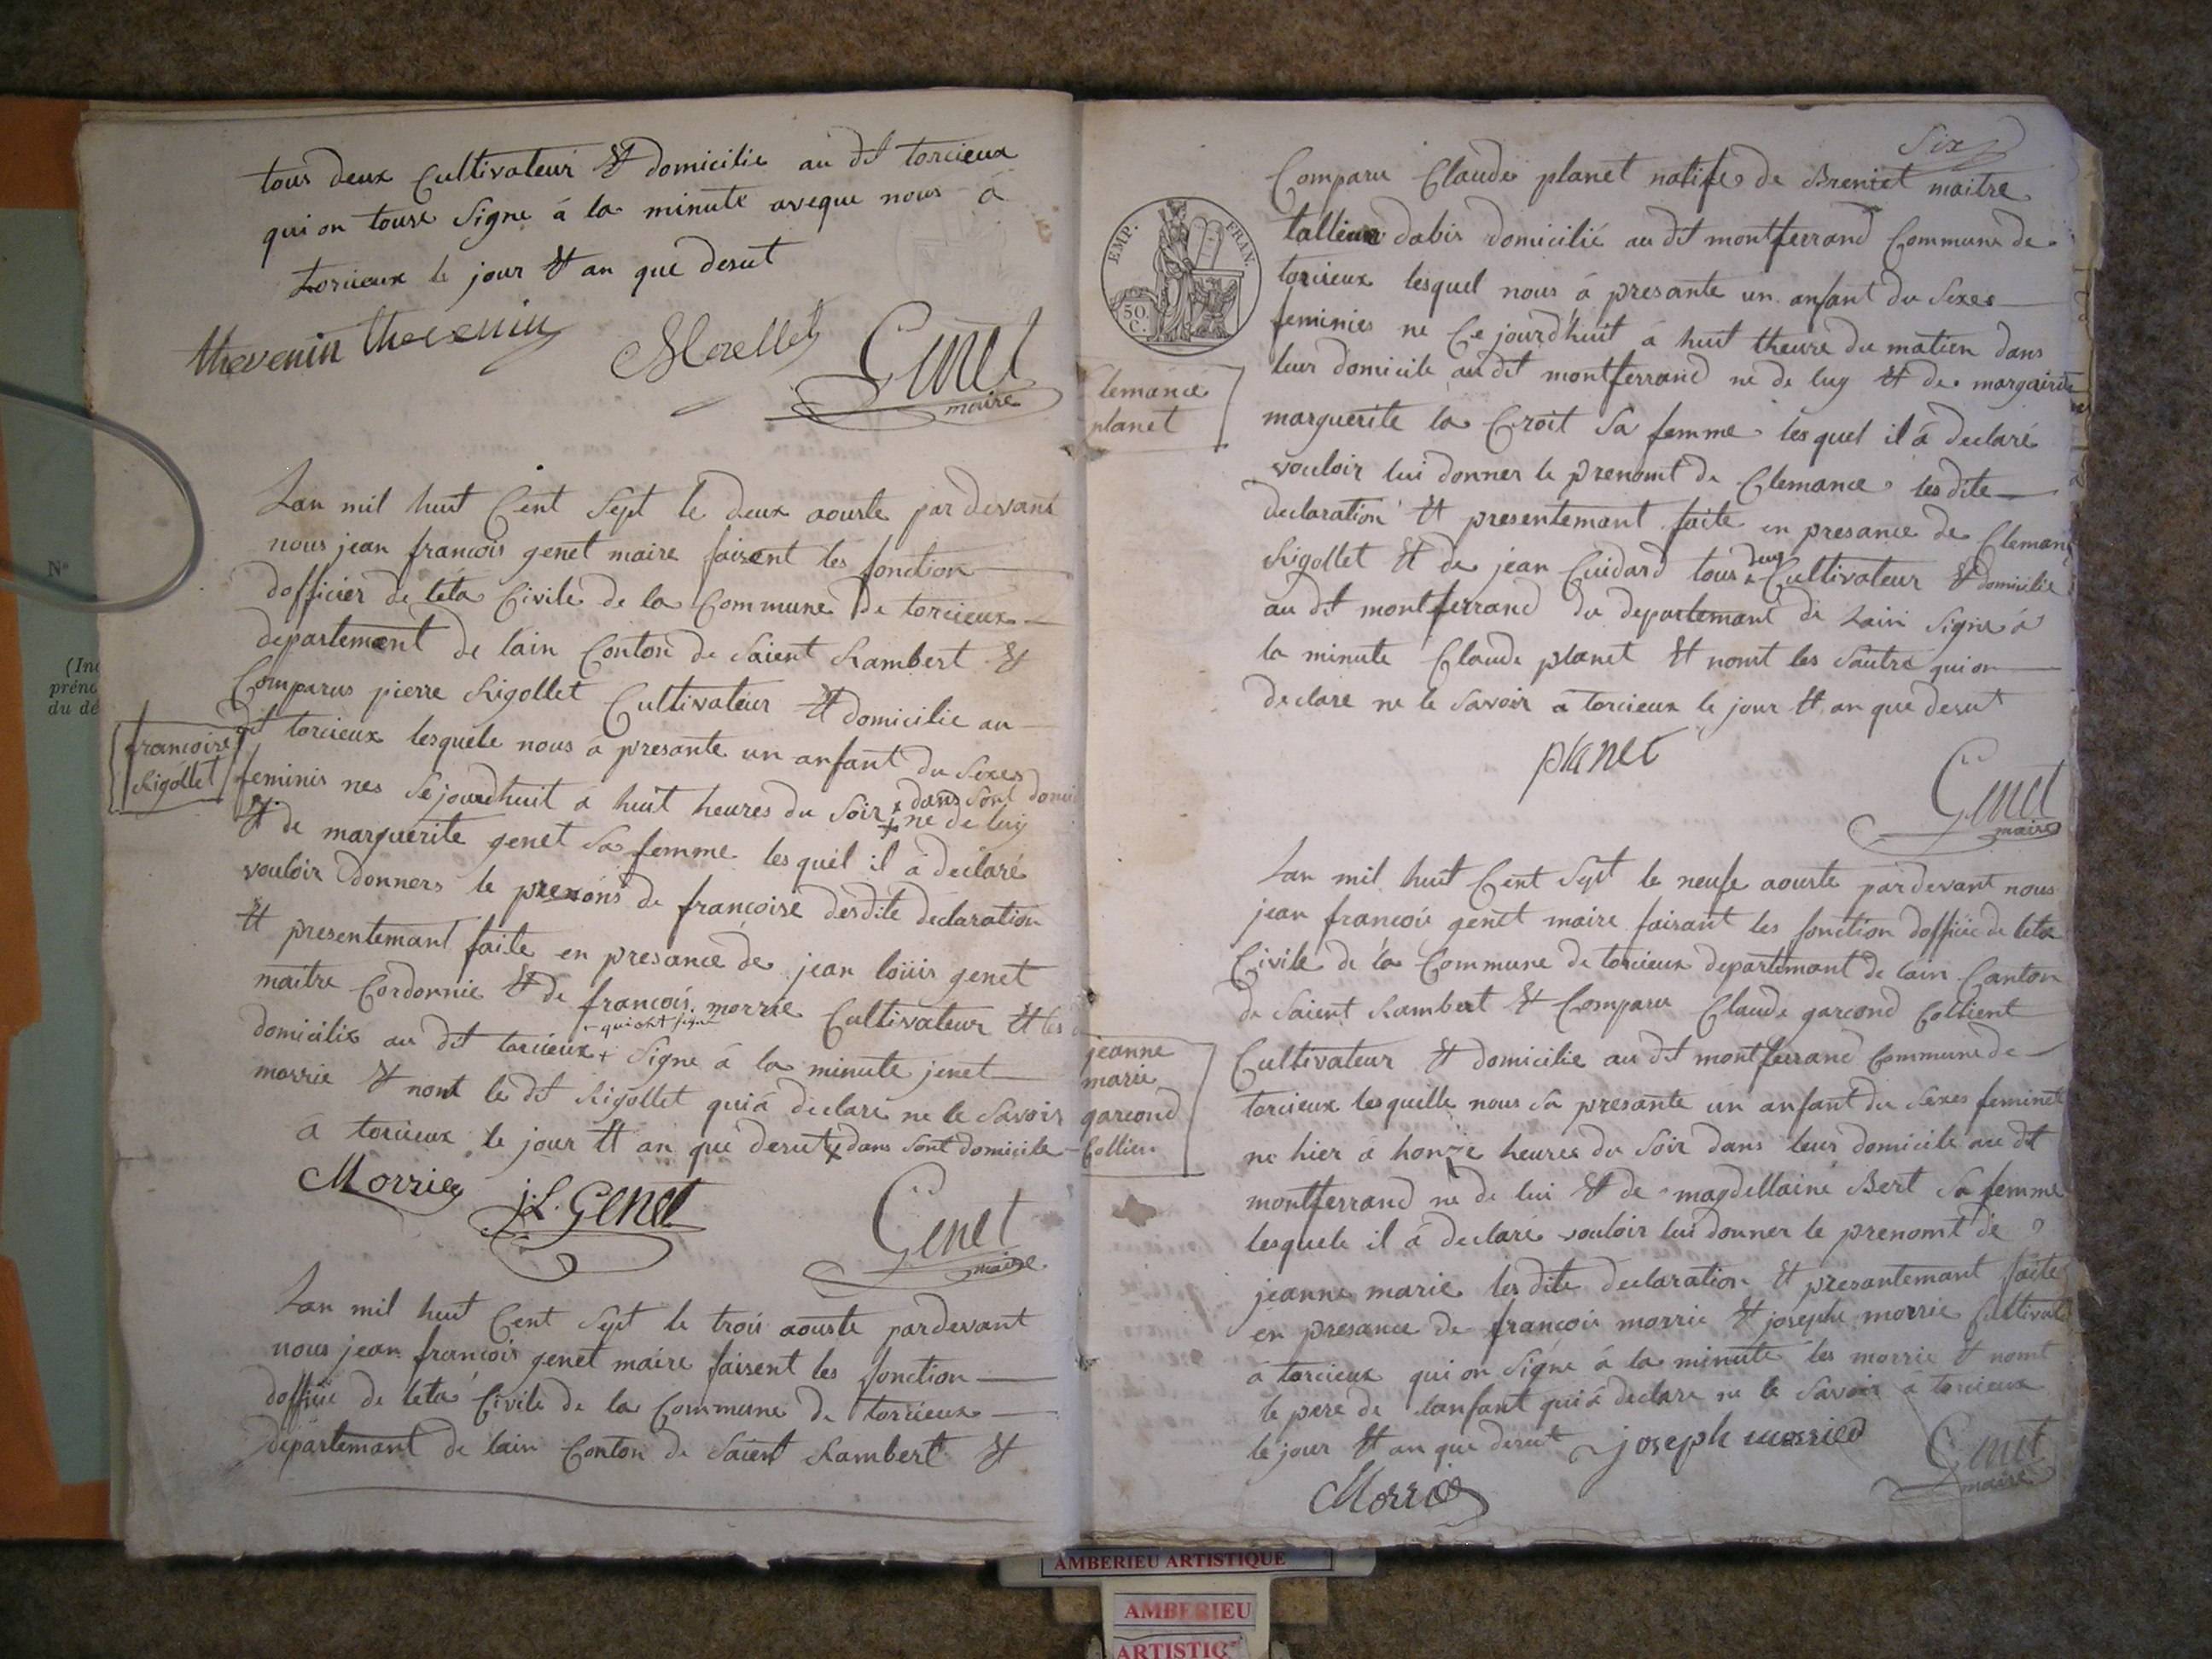 tous deux Cultivateur Et domicilie au dt torcieux
qui on touse Signe á la minute aveque nous á
torcieux le jour Et an que desut
thevenin thevenin
Genet
maire
Lan mil huit Cent Sept le deux aouste par devant
nous jean francois genet maire faisent les fonction
dofficier de leta Civile de la Commune De torcieux
departement de lain Conton de Saient Rambert Et
Comparus pierre Rigollet Cultivateur Et domicilie au
dt torcieux lesquele nous á presante un anfant du Sexes
francoise
Rigollet
feminis nes Sejourdhuit á huit heures du Soir x dans sont
+ ne de luy
Et de marguerite genet Sa femme lesquel il á declaré
vouloir donners le prenons de francoise desdite declaration
Et presentemant faite en presance de jean loüis genet
maitre Cordonnie Et de francois morrie Cultivateur Et les
domicilie au dt torcieux + Signe á la minute jenet
- qui ont signe
morrie Et nont le dt Rigollet qui á declare ne le Savoir
á torcieux le jour Et an que desut x dans sont domicile
Morrie J.L. Genet
Genet
maire
Lan mil huit Cent Sept le trois aouste pardevant
nous jean francois genet maire faisent les fonction
doffiie de leta Civile de la Commune de torcieux
departemant de lain Conton de Saient Rambert Et
Six
Comparu Claude planet natife de Breniet maitre
EMP. FRAN.
50.
C.
tallieur dabis domicilié au dt montferrand Commune de
torcieux lesquel nous á presante un anfant du Sexes
feminies ne Ce jourdhuit á huit theure du matien dans
leur domicile au dt montferrand ne de luy Et de margairite
lemance
planet
marguerite la Croit Sa femme lesquel il á declaré
vouloir lui donner le prenomt de Clemance les dite
declaration Et presentemant faite en presance de Cleman
Rigollet Et de jean Cuidard tous deux Cultivateur Et domicilie
au dt montferrand du departemant de Lain Signe á
la minute Claude planet Et nomt les Sautre qui on
declare ne le Savoir a torcieux le jour Et an que desut
planet
Genet
maire
Lan mil huit Cent Sept le neufe aouste pardevant nous
jean francois genet maire faisant les fonction doffiie de leta
Civile de la Commune de torcieux departemant de lain Canton
de Saient Rambert Et Comparu Claude garcond Collient
jeanne
marie
garcond
Collien
Cultivateur Et domicilie au dt montferrand Commune de
torcieux lesquelle nous Sa presante un anfant du Sexes feminet
ne hier á honze heures du Soir dans leur domicile au dt
montferrand ne de lui Et de magdellaine Bert Sa femme
lesquele il á declaré vouloir lui donner le prenomt de
jeanne marie les dite declaration Et presantemant faite
en presance de francois morrie Et josephe morrie Cultivat
á torcieux qui on Signe á la minute les morrie Et nomt
le pere de lanfant qui á declare ne le Savoir á torcieux
le jour Et an que desut joseph morrie
Genet
maire
Morrie
AMBERIEU ARTISTIQUE
AMBERIEU
ARTISTIQ
N°
prén
du dé